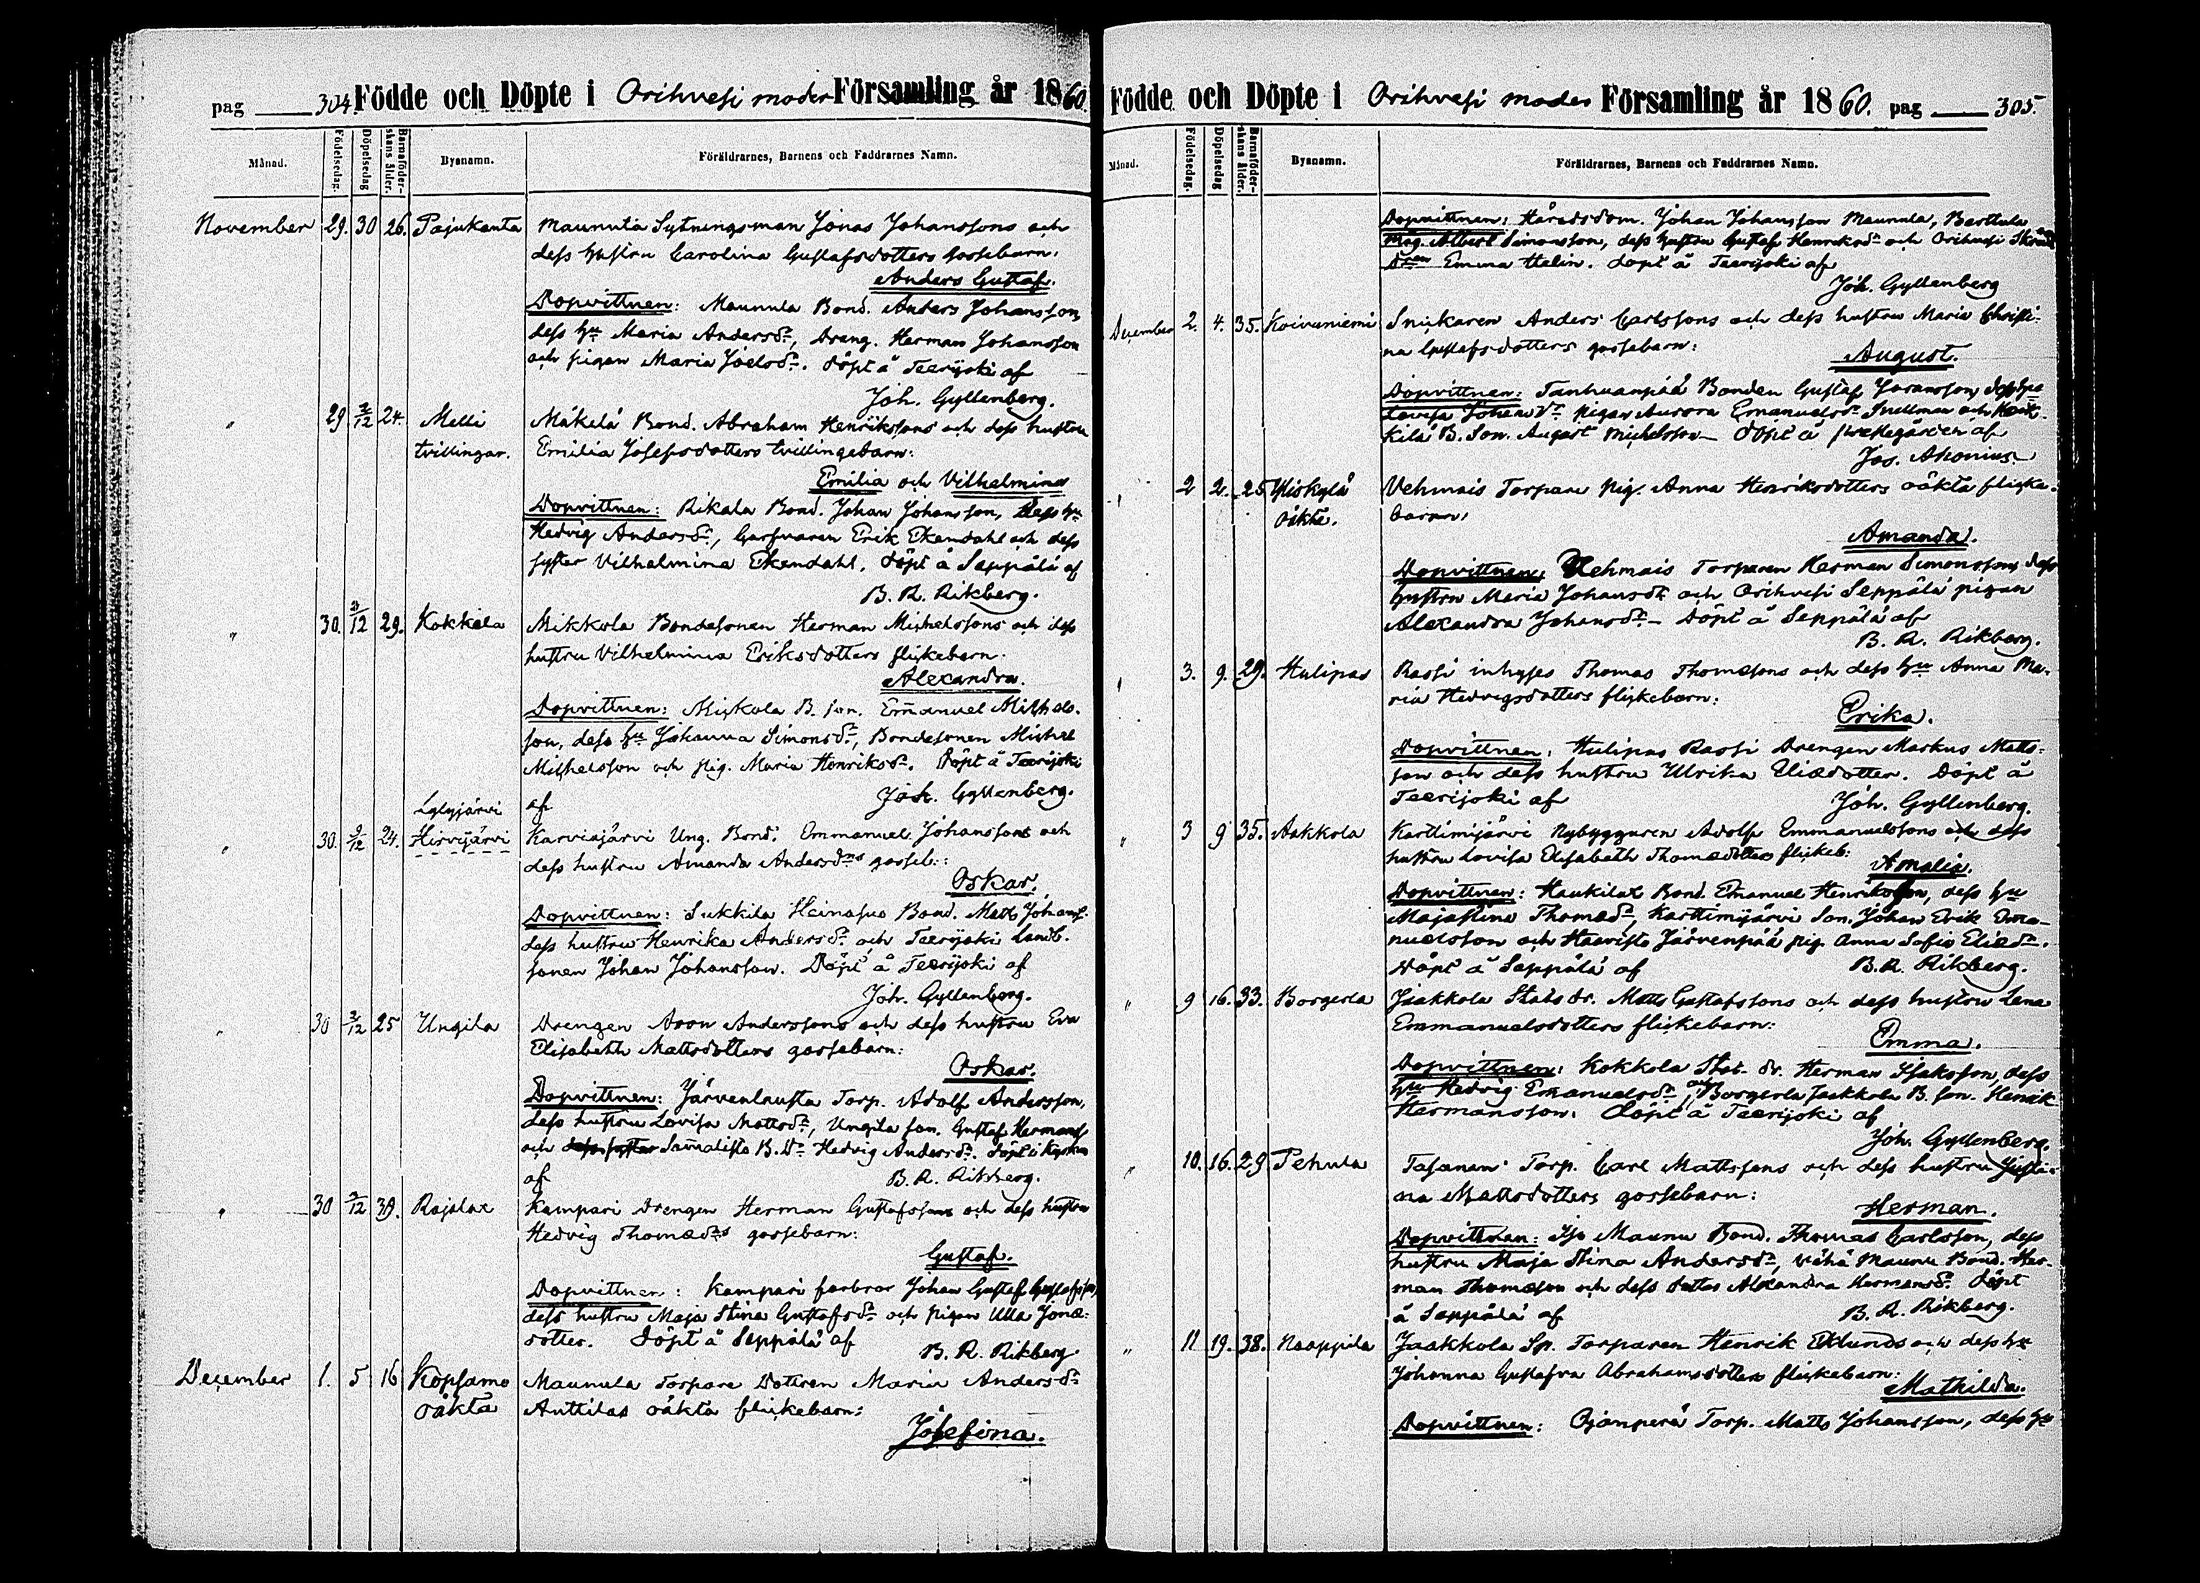 pag 304. Födde och Döpte i Orihvesi moder Församling år 1860.
Månad. Födelsedag. Döpelsedag Barnaföderskans ålder. Byanamn. Föräldrarnes, Barnens och Faddrarnes Namn.
November 29. 30 26. Pajukanta Maunula Sytningsman Jonas Johanssons och
dess hustru Carolina Gustafsdotters gossebarn:
Anders Gustaf.
Dopvittnen: Maunula Bond. Anders Johansson,
dess hu Maria Andersdr, Dreng. Herman Johansson
och pigan Maria Joelsdr. Döpt å Teerijoki af
Joh. Gyllenberg.
" 29 2/12 24. Melli Mäkelä Bond. Abraham Henrikssons och dess hustru
tvillingar. Emilia Josefsdotters tvillingebarn:
Emilia och Vilhelmina
Dopvittnen: Rikala Bond. Johan Johansson, dess hu
Hedvig Andersdr, Garfvaren Erik Ekendahl och dess
syster Vilhelmina Ekendahl. Döpt å Seppälä af
B. R. Rikberg.
" 30. 2/12 29. Kokkila Mikkola Bondesonen Herman Michelssons och dess
hustru Vilhelmina Eriksdotters flickebarn:
Alexandra.
Dopvittnen: Mickola B. son. Emanuel Michels-
son, dess hu Johanna Simonsdr, Bondesonen Michel
Michelsson och pig. Maria Henriksdr. Döpt å Teerijoki
af Joh. Gyllenberg.
Lylyjärvi
" 30. 9/12 24. Hirvijärvi Karviajärvi Ung. Bond. Emmanuel Johanssons och
dess hustru Amanda Andersdrs gosseb.:
Oskar.
Dopvittnen: Sukkila Heinäsuo Bond. Matts Johans.
dess hustru Henrika Andersdr och Teerijoki Landb.
sonen Johan Johansson. Döpt å Teerijoki af
Joh. Gyllenberg.
" 30 2/12 25 Ungila Drengen Aron Anderssons och dess hustru Eva
Elisabeth Mattsdotters gossebarn:
Oskar.
Dopvittnen: Järvenlausta Torp. Adolf Andersson,
dess hustru Lovisa Mattsdr, Ungila son. Gustaf Hermans
och B. Dr Hedvig Andersdr. Döpt i
af B. R. Rikberg.
" 30 2/12 39. Rajalax Kampari Drengen Herman Gustafssons och dess hustru
Hedvig Thomædrs gossebarn:
Gustaf.
Dopvittnen: Kampari farbror Johan Gustaf Gustafsson,
dess hustru Maja Stina Gustafsdr och pigan Ulla Jonæ-
dotter. Döpt å Seppälä af B. R. Rikberg
December 1. 5 16 Kopsamo Maunula Torpare Dottren Maria Andersdr
oäkta Anttilas oäkta flickebarn:
Josefina.
Födde och Döpte i Orihvesi moder Församling år 1860. pag 305.
Månad. Födelsedag. Döpelsedag Barnaföderskans ålder. Byanamn. Föräldrarnes, Barnens och Faddrarnes Namn.
Dopvittnen: Häradsdom. Johan Johansson Maunula, Berttula
Mag. Albert Simonsson, dess hustru Henriksdr och Orihvesi
Emma Helin. Döpt å Teerijoki af
Joh. Gyllenberg
December 2. 4. 35. Koivuniemi Snickaren Anders Carlssons och dess hustru Maria Christi-
na Gustafsdotters gossebarn:
August.
Dopvittnen: Tanhuanpää Bonden Gustaf dess hu
Lovisa pigan Aurora Emanuelsdr Snellman och
kilä B. Son. August Michelsson. Döpt å prestegården af
Jos. Aronius.
" 2 2. 25 Yliskylä Vehmais Torpare Pig. Anna Henriksdotters oäkta flicke-
oäkta. barn:
Amanda.
Dopvittnen: Vehmais Torparen Herman Simonsson, dess
hustru Maria Johansdr och Orihvesi Seppälä pigan
Alexandra Johansdr. Döpt å Seppälä af
B. R. Rikberg.
" 3. 9. 29. Hulipas Rassi inhyses Thomas Thomæsons och dess hu Anna Ma-
ria Hedvigsdotters flickebarn:
Erika.
Dopvittnen: Hulipas Rassi Drengen Markus Matts-
son och dess hustru Ulrika Eliædotter. Döpt å
Teerijoki af Joh. Gyllenberg.
" 3 9 35. Aakkola Karttimijärvi Nybyggaren Adolf Emmanuelssons och dess
hustru Lovisa Elisabeth Thomædotters flickeb: Amalia.
Dopvittnen: Haukilax Bond. Emanuel Henriksson, dess hu
Majastina Thomædr, Karttimijärvi son. Johan Erik Ema-
nuelsson och Haavisto Järvenpää pig. Anna Sofia Eliædr.
Döpt å Seppälä af B. R. Rikberg.
" 9 16. 33. Borgerla Jaakkola Statsdr. Matts Gustafssons och dess hustru Lena
Emmanuelsdotters flickebarn:
Emma.
Dopvittnen: Kokkola Stat. dr. Herman Isaksson, dess
hu Hedvig Emanuelsdr, och Borgerla Jaakkola B. son. Henrik
Hermansson. Döpt å Teerijoki af
Joh. Gyllenberg.
" 10. 16. 29 Pehula Tasanen Torp. Carl Mattssons och dess hustru Justi-
na Mattsdotters gossebarn:
Herman.
Dopvittnen: Iso Maunu Bond. Thomas Carlsson, dess
hustru Maja Stina Andersdr, Vähä Maunu Bond. Her-
man Thomæson och dess dotter Alexandra Hermansdr. Döpt
å Seppälä af B. R. Rikberg.
" 11 19. 38. Naappila Jaakkola Sp. Torparen Henrik Eklunds och dess hu
Johanna Gustafva Abrahamsdotters flickebarn:
Mathilda.
Dopvittnen: Ojanperä Torp. Matts Johansson, dess hu